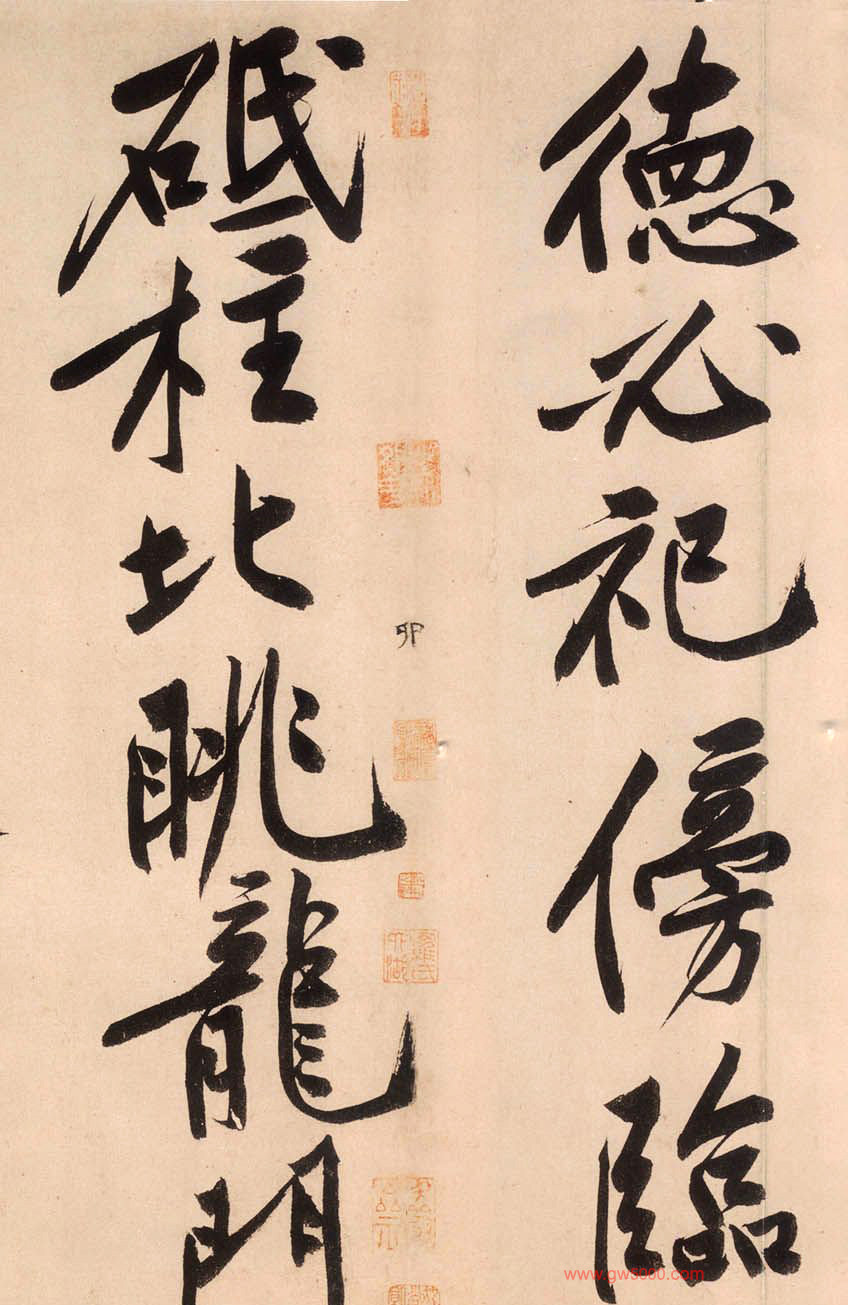 德必祀傍臨
砥柱北眺龍門
卯
www.gw5000.com